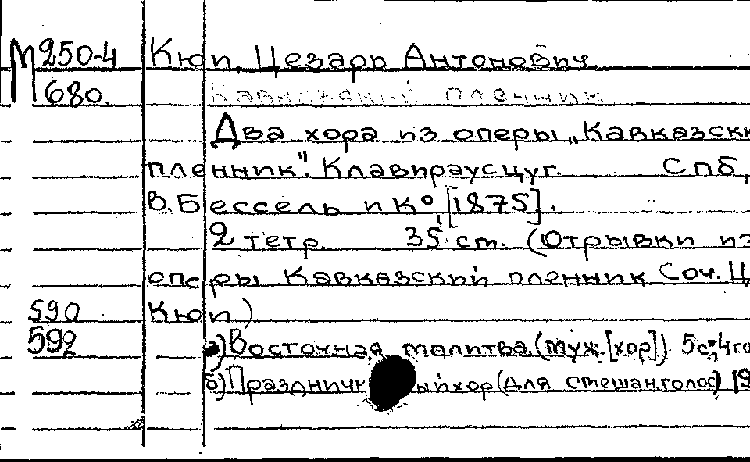 М 250-4 Кюи, Цезарь Антонович
680. Кавказский пленник
Два хора из оперы „Кавказски
пленник". Клавираусцуг. Спб,
В. Бессель и К° [1875].
2 тетр. 35 ст. (Отрывки из
оперы Кавказский пленник Соч. Ц
590 Кюи)
592 а) Восточная молитва (муж. [хор]) 5с; 4го
б) Праздничный хор (для смешан. голос)